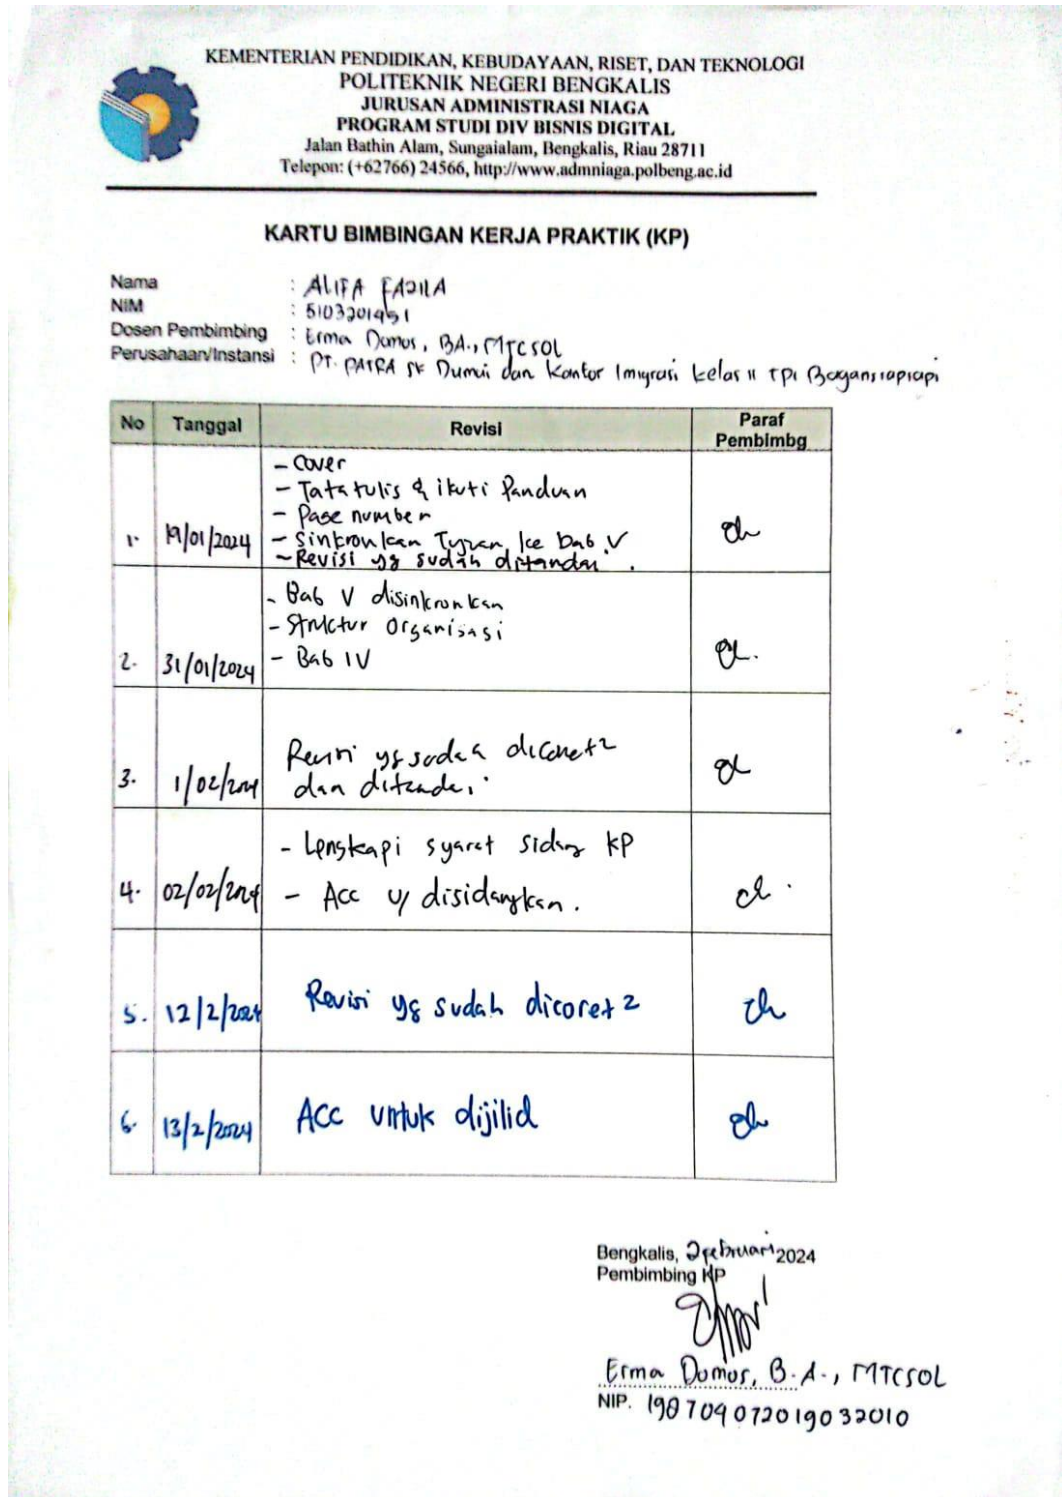 KEMENTERIAN PENDIDIKAN, KEBUDAYAAN, RISET, DAN TEKNOLOGI
POLITEKNIK NEGERI BENGKALIS
JURUSAN ADMINISTRASI NIAGA
PROGRAM STUDI DIV BISNIS DIGITAL
Jalan Bathin Alam, Sungaialam, Bengkalis, Riau 28711
Telepon: (+62766) 24566, http://www.admniaga.polbeng.ac.id
KARTU BIMBINGAN KERJA PRAKTIK (KP)
Nama : ALIFA FADILA
NIM :
Dosen Pembimbing : Erma Domos, BA., MTCSOL
Perusahaan/Instansi : PT. PATRA SK Dumai dan Kantor Imigrasi kelas II TPI Bagansiapiapi
No Tanggal Revisi Paraf Pembimbg
1. 19/01/2024
- Cover
- Tata tulis & ikuti Panduan
- Page number
- Sinkronkan Tujuan ke bab V
- Revisi yg sudah ditandai.
2. 31/01/2024
- Bab V disinkronkan
- Struktur Organisasi
- Bab IV
3. 1/02/2024
Revisi yg sudah dicoret2
dan ditandai
4. 02/02/2024
- Lengkapi syarat sidang KP
- Acc u/ disidangkan.
5. 12/2/2024 Revisi yg sudah dicoret2
6. 13/2/2024 ACC untuk dijilid
Bengkalis, 2 Februari 2024
Pembimbing KP
Erma Domos, B.A., MTCSOL
NIP. 198709072019032010